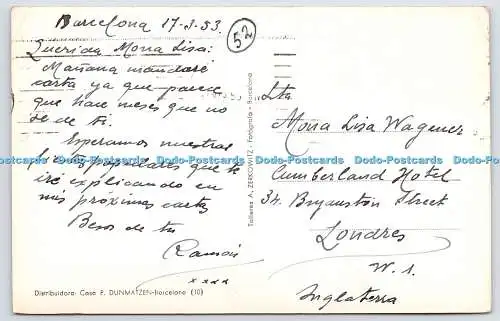 Barcelona 17-3-53
52
Querida Mona Lisa:
Mañana mandaré
carta ya que parece
que hace meses que no
sé de ti.
Esperamos nuestras
que te
iré explicando en
mis próximas cartas
Besos de tu
Ramón
x x x x
Distribuidora: Casa F. DUNMATZEN-Barcelona (10)
Talleres A. ZERKOWITZ - Fotógrafo - Barcelona
Mona Lisa Wagener
Cumberland Hotel
34. Bryanston Street
Londres
W. 1.
Inglaterra
Dodo-Postcards Dodo-Postcards Dodo-Postcards Dodo-Postcards Dodo-Postcards Dodo-Postcards